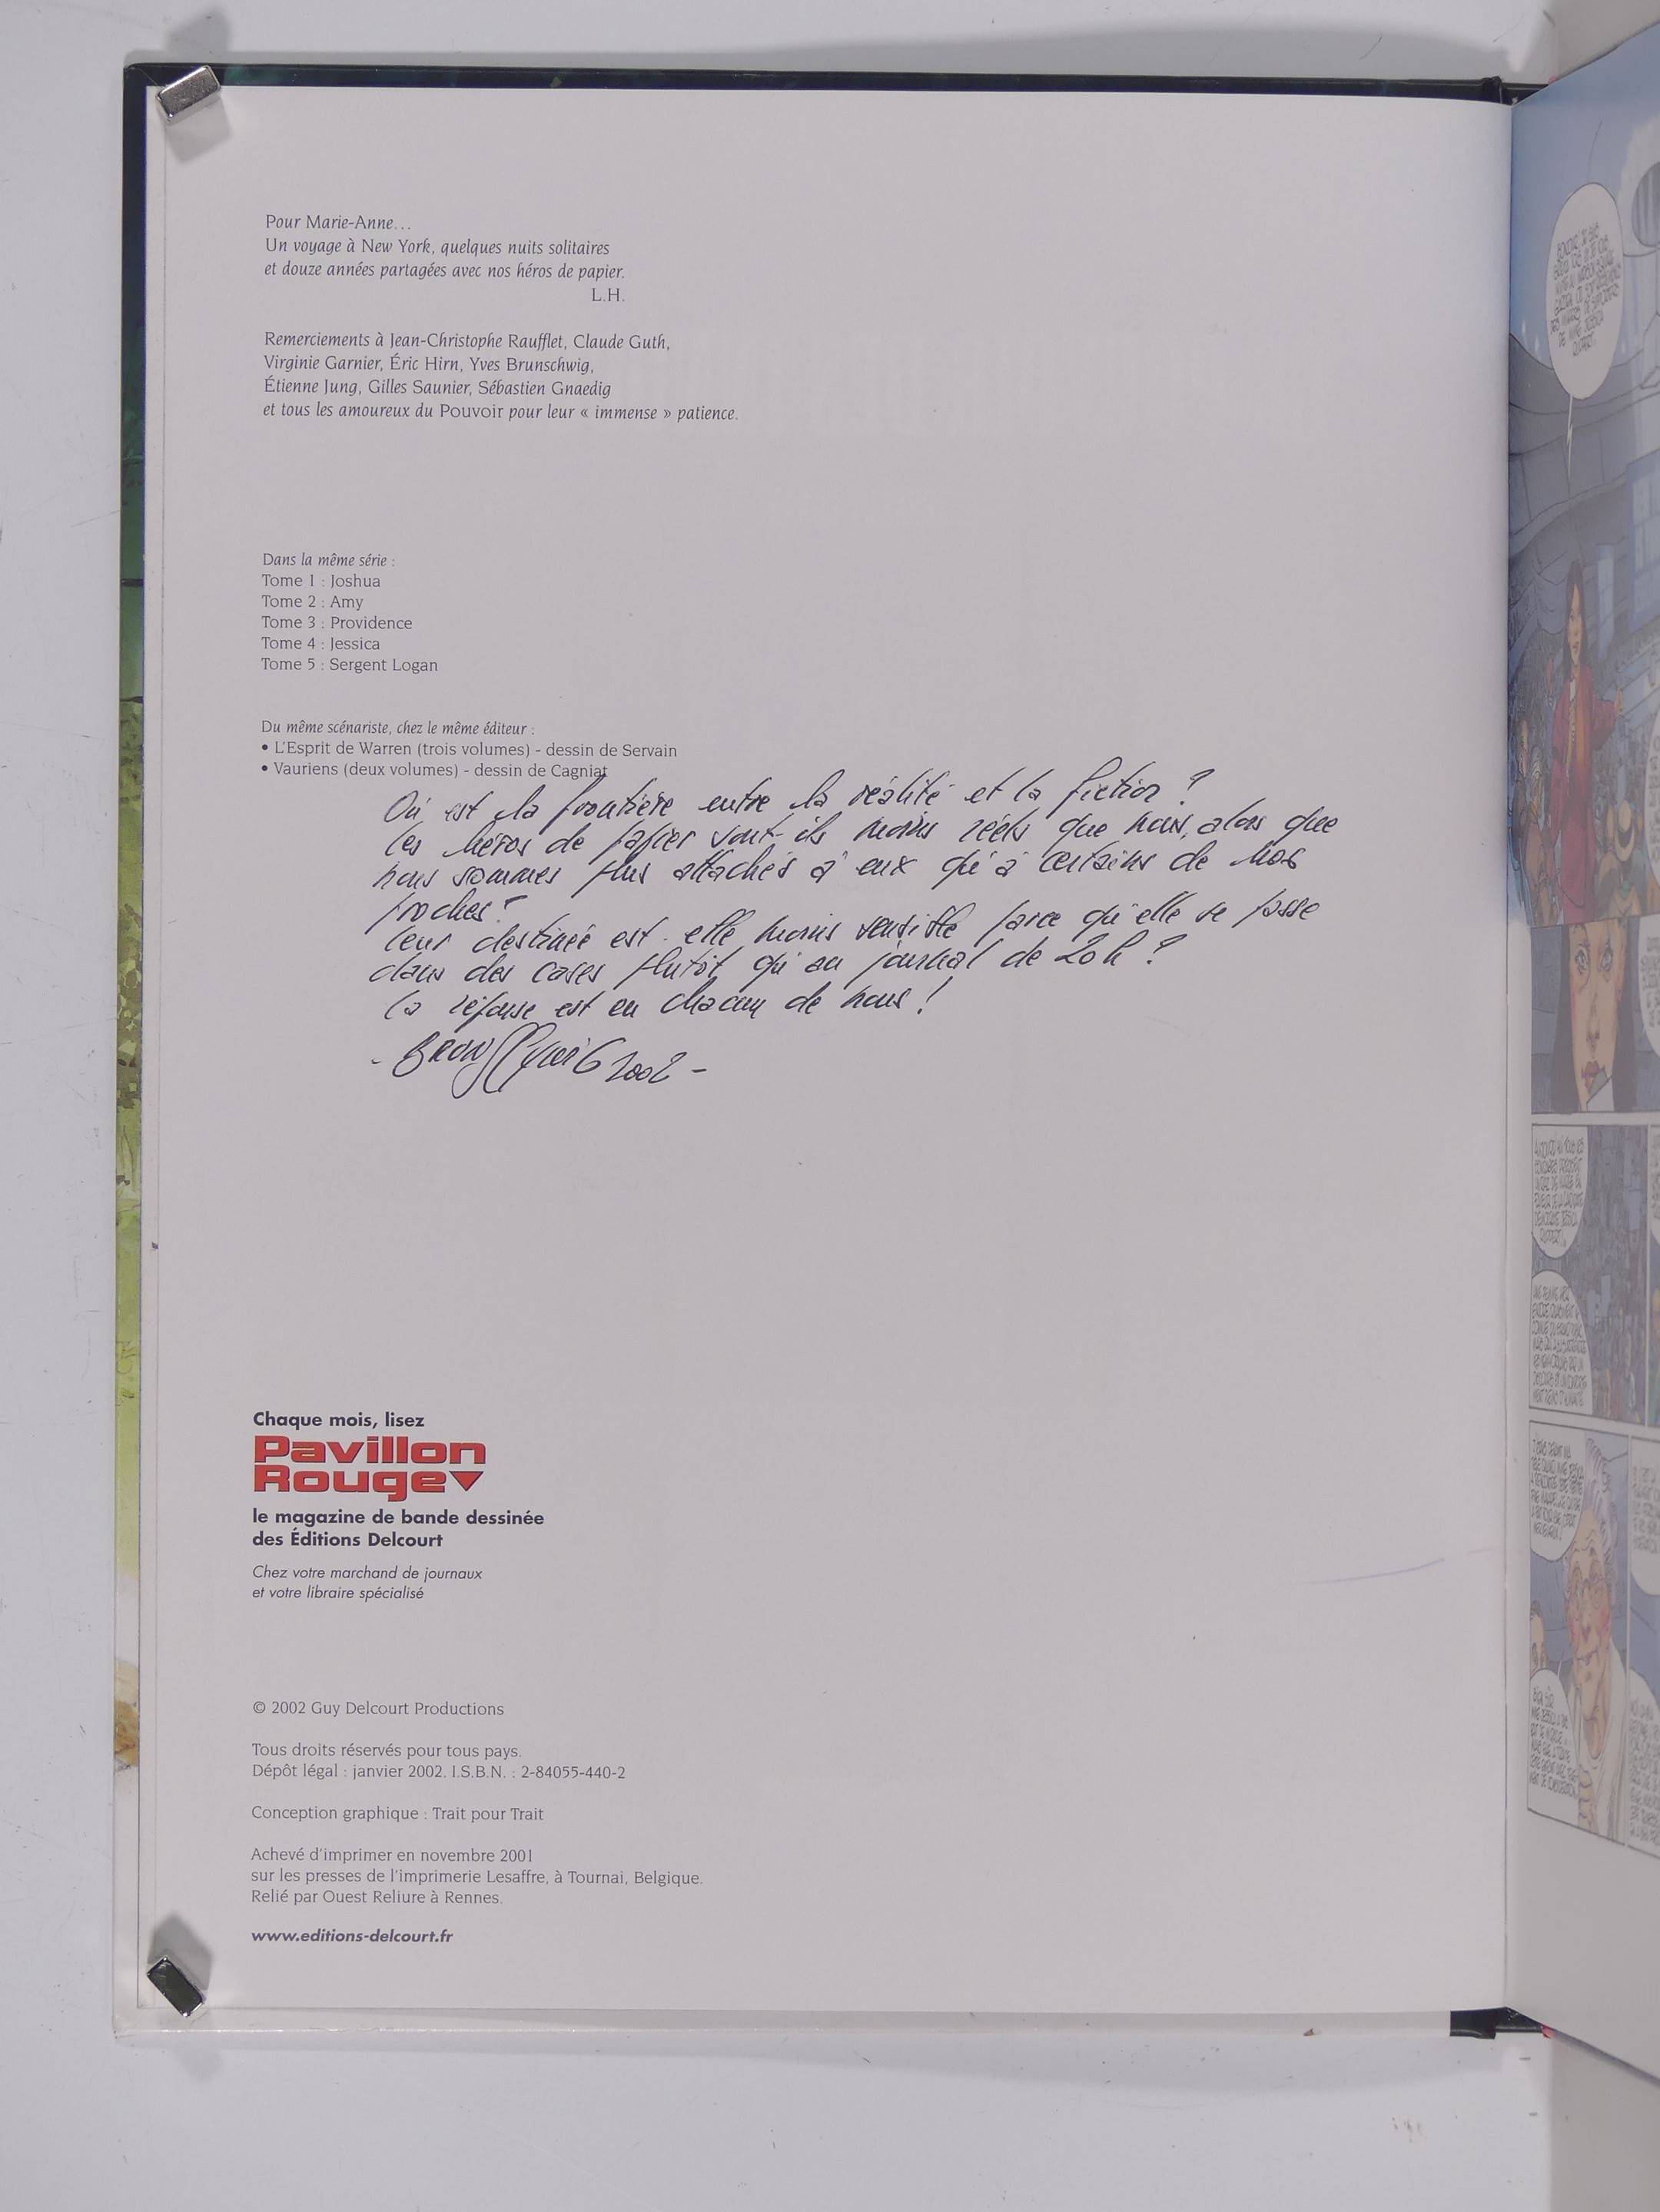 Pour Marie-Anne...
Un voyage à New York, quelques nuits solitaires
et douze années partagées avec nos héros de papier.
L.H.
Remerciements à Jean-Christophe Raufflet, Claude Guth,
Virginie Garnier, Éric Hirn, Yves Brunschwig,
Étienne Jung, Gilles Saunier, Sébastien Gnaedig
et tous les amoureux du Pouvoir pour leur « immense » patience.
Dans la même série :
Tome 1 : Joshua
Tome 2 : Amy
Tome 3 : Providence
Tome 4 : Jessica
Tome 5 : Sergent Logan
Du même scénariste, chez le même éditeur :
• L'Esprit de Warren (trois volumes) - dessin de Servain
• Vauriens (deux volumes) - dessin de Cagniat
Où est la frontière entre la réalité et la fiction ?
Les héros de papier sont-ils moins réels que nous, alors que
nous sommes plus attachés à eux qu'à certains de nos
proches ?
Leur destinée est-elle moins sensible parce qu'elle se passe
dans des cases plutôt qu'au journal de 20h ?
La réponse est en chacun de nous !
2002 -
Chaque mois, lisez
Pavillon
Rouge
le magazine de bande dessinée
des Éditions Delcourt
Chez votre marchand de journaux
et votre libraire spécialisé
© 2002 Guy Delcourt Productions
Tous droits réservés pour tous pays.
Dépôt légal : janvier 2002. I.S.B.N. : 2-84055-440-2
Conception graphique : Trait pour Trait
Achevé d'imprimer en novembre 2001
sur les presses de l'imprimerie Lesaffre, à Tournai, Belgique.
Relié par Ouest Reliure à Rennes.
www.editions-delcourt.fr